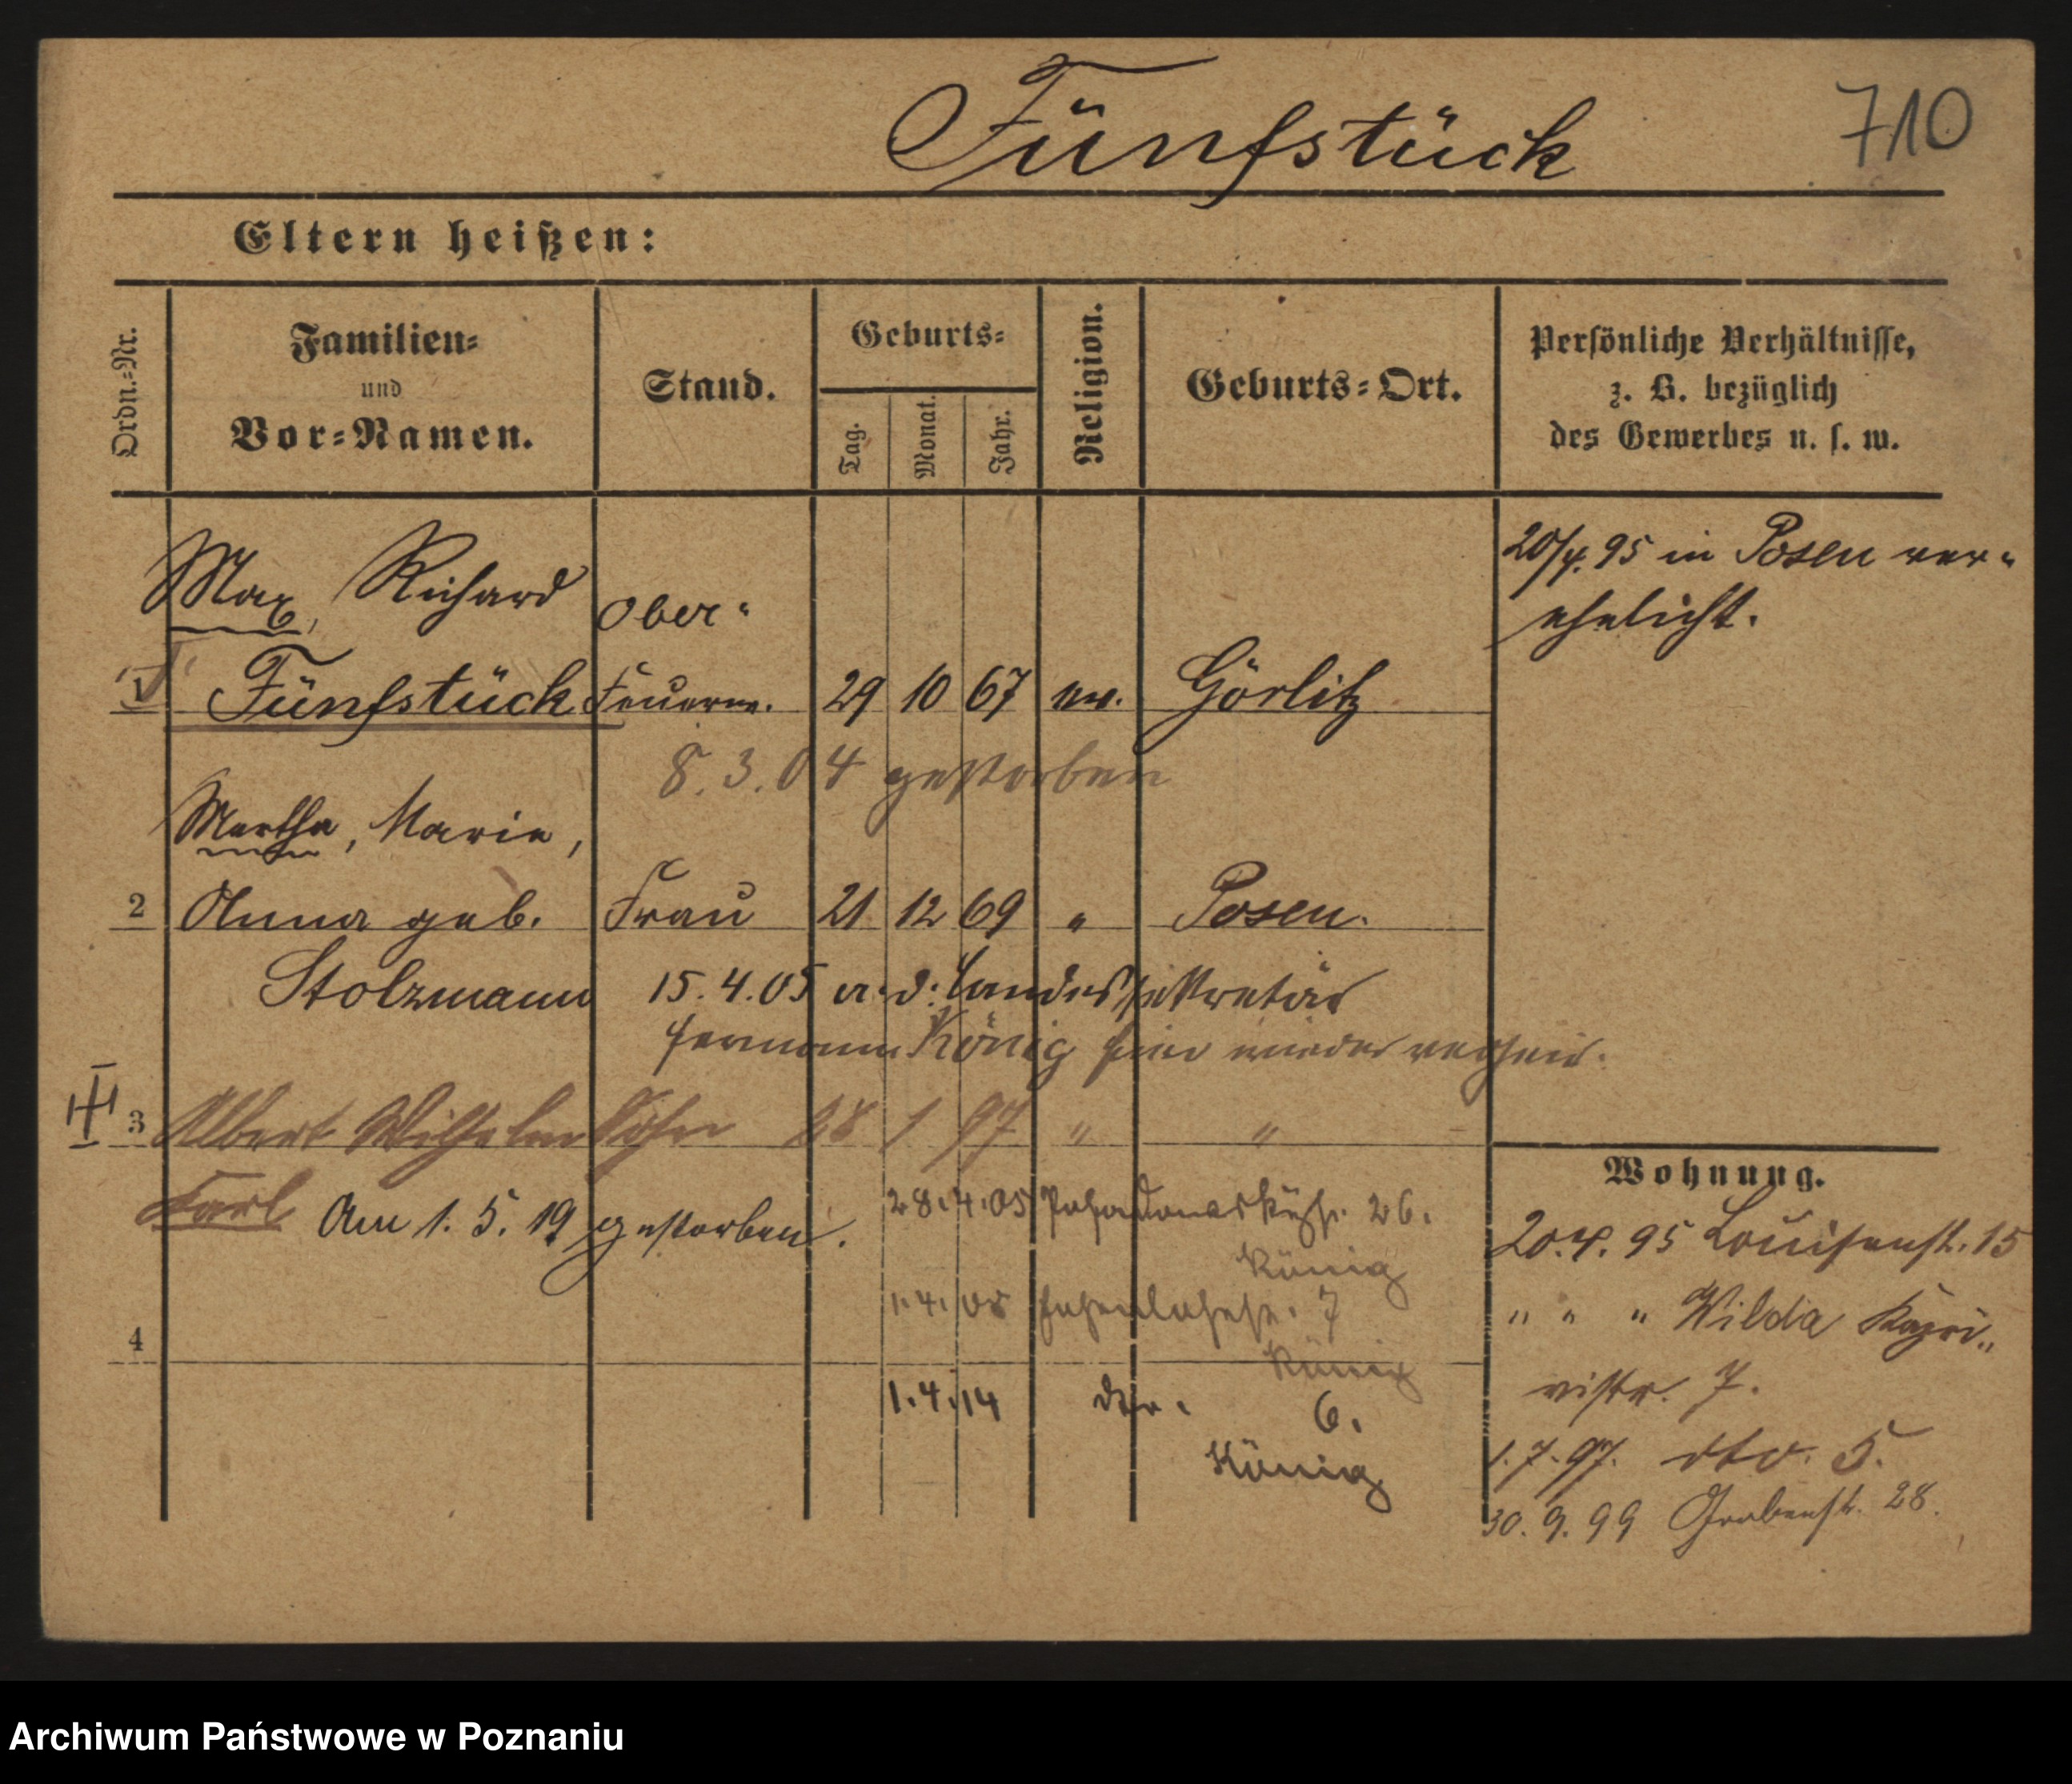 Fünfstück
710
Eltern heißen:
Ordn.-Nr.
Familien-
und
Vor-Namen.
Stand.
Geburts-
Tag.
Monat.
Jahr.
Religion.
Geburts-Ort.
Persönliche Verhältnisse,
z. B. bezüglich
des Gewerbes u. s. w.
20/4. 95 in Posen ver-
ehelicht.
Max, Richard Ober-
1 Fünfstück Feuerw. 29 10 67 ev. Görlitz
8.3.04 gestorben
Martha, Marie,
2 Anna geb. Frau 21 12 69 " Posen.
Stolzmann 15.4.05 a. d. Landessekretär
Hermann König hier wieder verheir.
III 3 Albert Wilhelm Sohn 28 1 97 " "
Karl
Am 1. 5. 19 gestorben.
28.4.05 26.
König
1.4.08 Hohenlohestr. 7
König
1.4.14 6.
König
4
Wohnung.
20.4. 95 Louisenst. 15
" " " Wilda
7.
1.7.97. dto. 5.
30. 9. 99 Grabenst. 28.
Archiwum Państwowe w Poznaniu